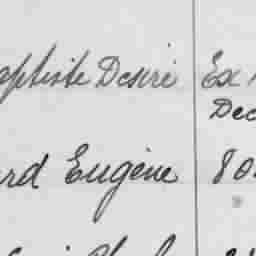 aptiste Desiré Ex
Dec
ard Eugène 80